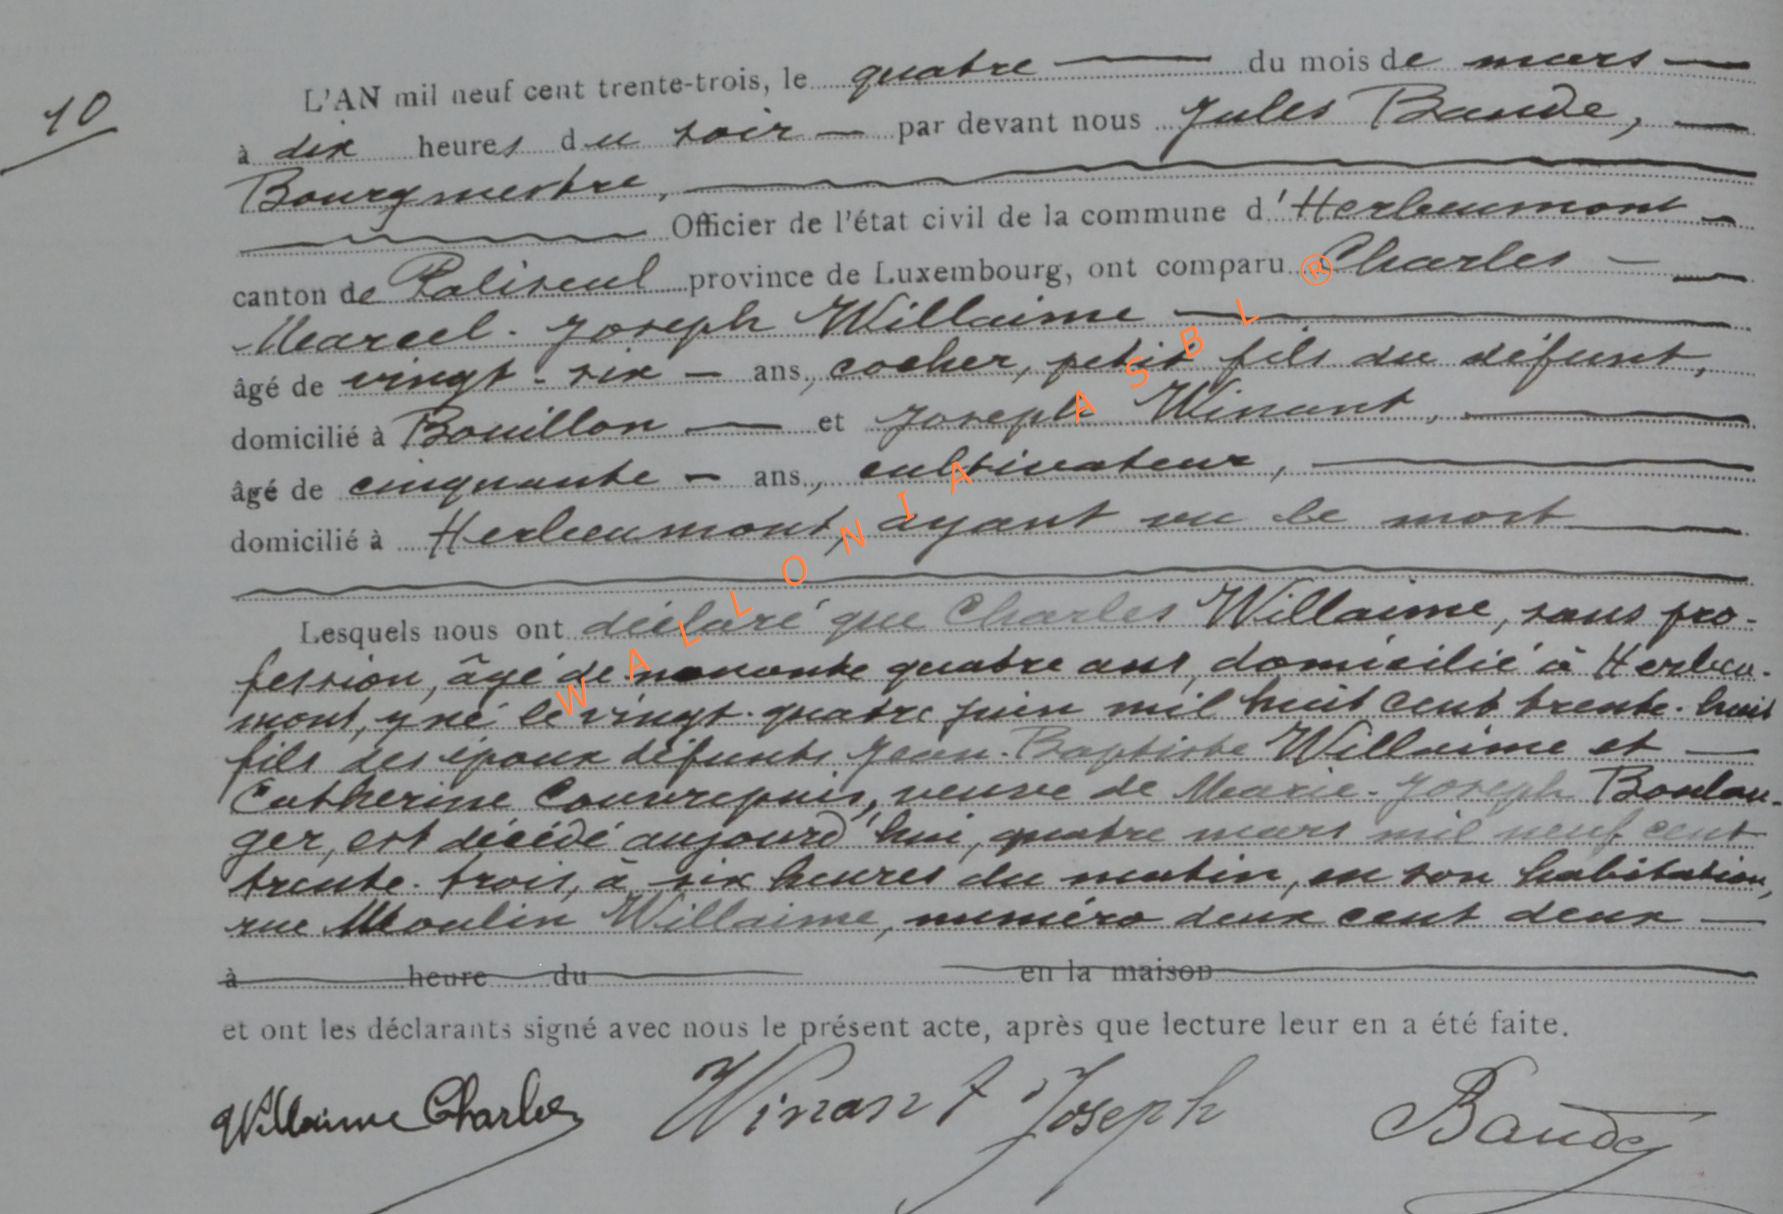 10
L'AN mil neuf cent trente-trois, le quatre du mois de mars
à dix heures du soir par devant nous Jules Baude,
Bourgmestre,
Officier de l'état civil de la commune d'Herbeumont
canton de Paliseul province de Luxembourg, ont comparu Charles
Marcel-Joseph Willaime
âgé de vingt-six ans, cocher, petit fils du défunt,
domicilié à Bouillon et Joseph Winant,
âgé de cinquante ans, cultivateur,
domicilié à Herbeumont, ayant vu le mort
Lesquels nous ont déclaré que Charles Willaime, sans pro-
fession, âgé de nonante quatre ans, domicilié à Herbeu-
mont, y né le vingt-quatre juin mil huit cent trente-huit
fils des époux défunts Jean-Baptiste Willaime et
Catherine veuve de Marie-Joseph Boulan-
ger, est décédé aujourd'hui, quatre mars mil neuf cent
trente-trois, à six heures du matin, en son habitation,
rue Moulin Willaime, numéro deux cent deux
à heure du en la maison
et ont les déclarants signé avec nous le présent acte, après que lecture leur en a été faite.
Willaime Charles Winant Joseph Baude
WALLONIA ASBL ®